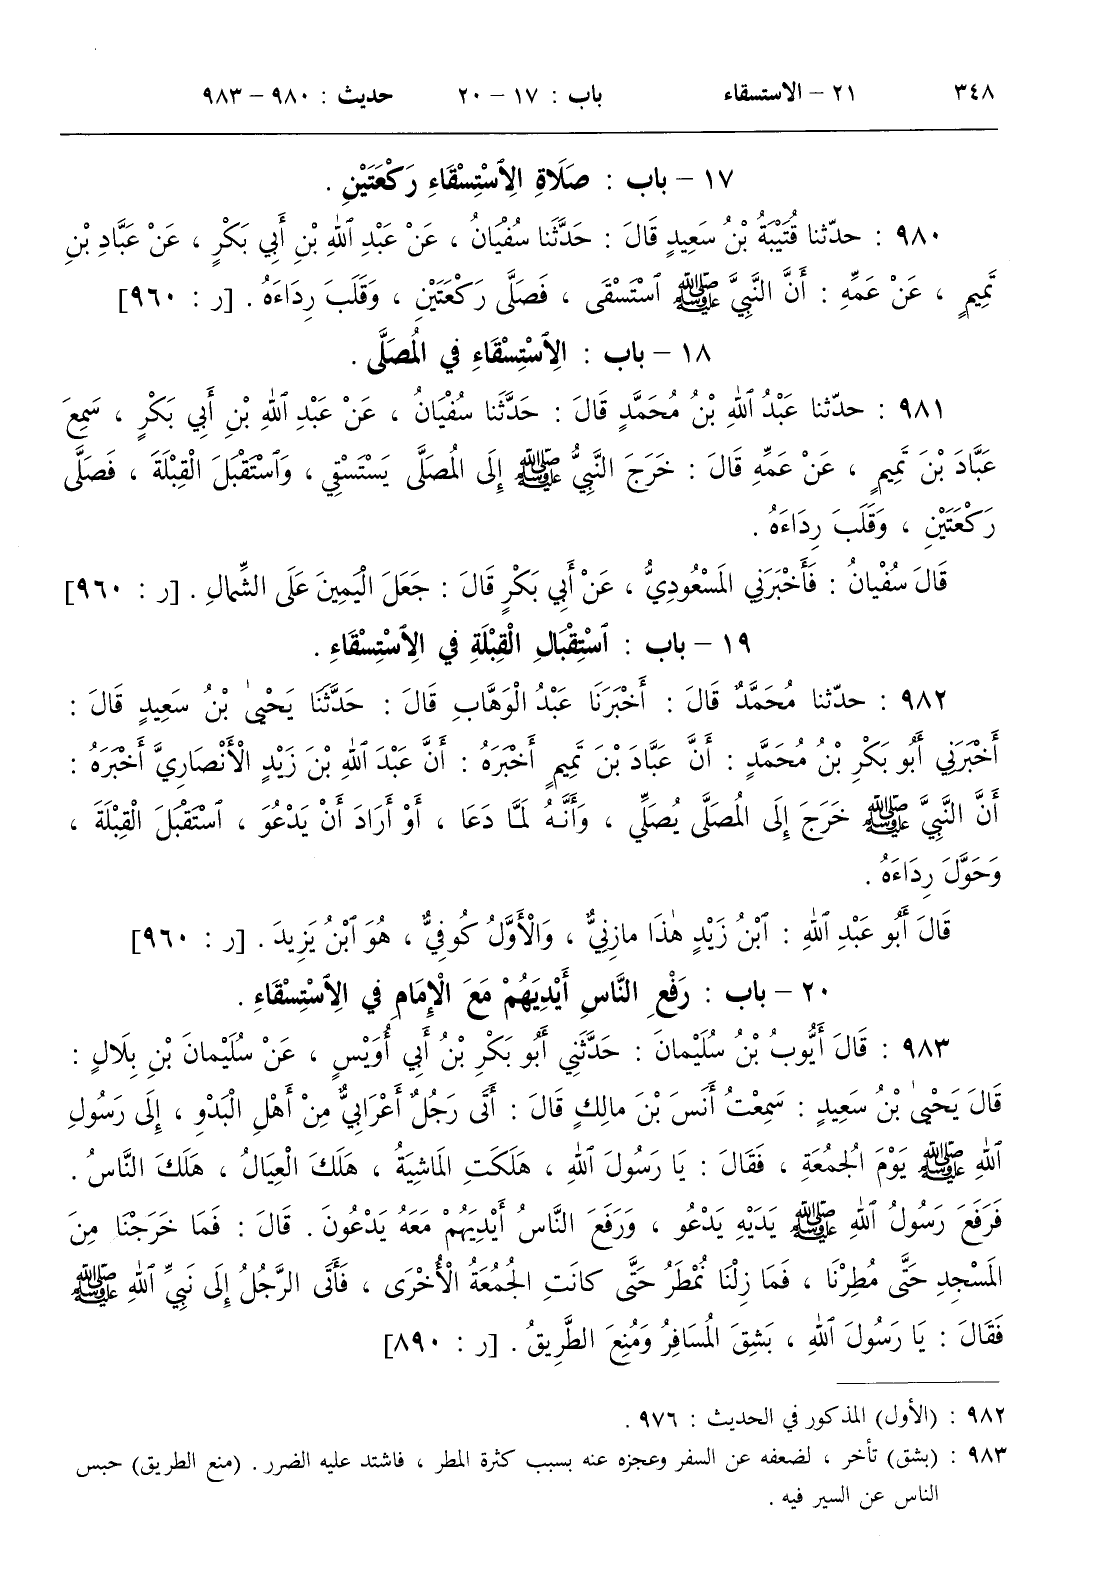 ٣٤٨ ٢١ – الاستسقاء باب : ١٧ – ٢٠ حديث : ٩٨٠ – ٩٨٣
١٧ – باب : صَلَاةِ الِٱسْتِسْقَاءِ رَكْعَتَيْنِ .
٩٨٠ : حدّثنا قُتَيْبَةُ بْنُ سَعِيدٍ قَالَ : حَدَّثَنا سُفْيَانُ ، عَنْ عَبْدِ ٱللهِ بْنِ أَبِي بَكْرٍ ، عَنْ عَبَّادِ بْنِ
تَمِيمٍ ، عَنْ عَمِّهِ : أَنَّ النَّبِيَّ ﷺ ٱسْتَسْقَى ، فَصَلَّى رَكْعَتَيْنِ ، وَقَلَبَ رِدَاءَهُ . [ر : ٩٦٠]
١٨ – باب : الِٱسْتِسْقَاءِ في المُصَلَّى .
٩٨١ : حدّثنا عَبْدُ ٱللهِ بْنُ مُحَمَّدٍ قَالَ : حَدَّثَنا سُفْيَانُ ، عَنْ عَبْدِ ٱللهِ بْنِ أَبِي بَكْرٍ ، سَمِعَ
عَبَّادَ بْنَ تَمِيمٍ ، عَنْ عَمِّهِ قَالَ : خَرَجَ النَّبِيُّ ﷺ إِلَى المُصَلَّى يَسْتَسْقِي ، وَٱسْتَقْبَلَ الْقِبْلَةَ ، فَصَلَّى
رَكْعَتَيْنِ ، وَقَلَبَ رِدَاءَهُ .
قَالَ سُفْيَانُ : فَأَخْبَرَنِي المَسْعُودِيُّ ، عَنْ أَبِي بَكْرٍ قَالَ : جَعَلَ الْيَمِينَ عَلَى الشِّمالِ . [ر : ٩٦٠]
١٩ – باب : ٱسْتِقْبَالِ الْقِبْلَةِ في الِٱسْتِسْقَاءِ .
٩٨٢ : حدّثنا مُحَمَّدٌ قَالَ : أَخْبَرَنَا عَبْدُ الْوَهَّابِ قَالَ : حَدَّثَنَا يَحْيىٰ بْنُ سَعِيدٍ قَالَ :
أَخْبَرَنِي أَبُو بَكْرِ بْنُ مُحَمَّدٍ : أَنَّ عَبَّادَ بْنَ تَمِيمٍ أَخْبَرَهُ : أَنَّ عَبْدَ ٱللهِ بْنَ زَيْدٍ الْأَنْصَارِيَّ أَخْبَرَهُ :
أَنَّ النَّبِيَّ ﷺ خَرَجَ إِلَى المُصَلَّى يُصَلِّي ، وَأَنَّهُ لَمَّا دَعَا ، أَوْ أَرَادَ أَنْ يَدْعُوَ ، ٱسْتَقْبَلَ الْقِبْلَةَ ،
وَحَوَّلَ رِدَاءَهُ .
قَالَ أَبُو عَبْدِ ٱللهِ : ٱبْنُ زَيْدٍ هٰذَا مازِنيٌّ ، وَالْأَوَّلُ كُوفيٌّ ، هُوَ ٱبْنُ يَزِيدَ . [ر : ٩٦٠]
٢٠ – باب : رَفْعِ النَّاسِ أَيْدِيَهُمْ مَعَ الْإِمَامِ في الِٱسْتِسْقَاءِ .
٩٨٣ : قَالَ أَيُّوبُ بْنُ سُلَيْمانَ : حَدَّثَنِي أَبُو بَكْرِ بْنُ أَبِي أُوَيْسٍ ، عَنْ سُلَيْمانَ بْنِ بِلَالٍ :
قَالَ يَحْيىٰ بْنُ سَعِيدٍ : سَمِعْتُ أَنَسَ بْنَ مالِكٍ قَالَ : أَتَى رَجُلٌ أَعْرَابيٌّ مِنْ أَهْلِ الْبَدْوِ ، إِلَى رَسُولِ
ٱللهِ ﷺ يَوْمَ الجُمُعَةِ ، فَقَالَ : يَا رَسُولَ ٱللهِ ، هَلَكَتِ المَاشِيَةُ ، هَلَكَ الْعِيَالُ ، هَلَكَ النَّاسُ .
فَرَفَعَ رَسُولُ ٱللهِ ﷺ يَدَيْهِ يَدْعُو ، وَرَفَعَ النَّاسُ أَيْدِيَهُمْ مَعَهُ يَدْعُونَ . قَالَ : فَمَا خَرَجْنَا مِنَ
المَسْجِدِ حَتَّى مُطِرْنَا ، فَمَا زِلْنَا نُمْطَرُ حَتَّى كانَتِ الجُمُعَةُ الْأُخْرَى ، فَأَتَى الرَّجُلُ إِلَى نَبِيِّ ٱللهِ ﷺ
فَقَالَ : يَا رَسُولَ ٱللهِ ، بَشِقَ المُسَافِرُ وَمُنِعَ الطَّرِيقُ . [ر : ٨٩٠]
٩٨٢ : (الأول) المذكور في الحديث : ٩٧٦ .
٩٨٣ : (بشق) تأخر ، لضعفه عن السفر وعجزه عنه بسبب كثرة المطر ، فاشتد عليه الضرر . (منع الطريق) حبس
الناس عن السير فيه .